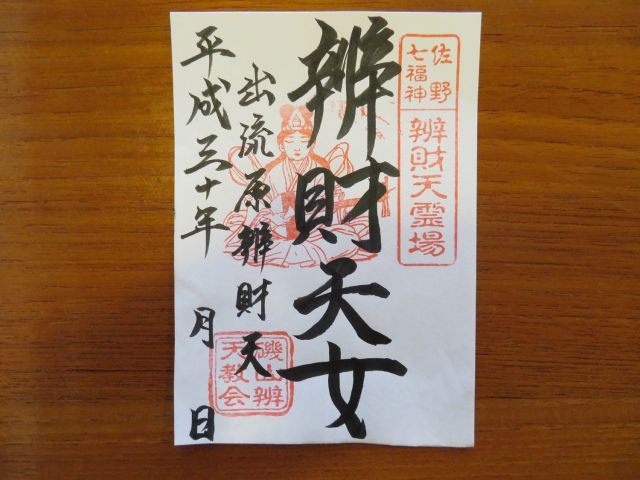 佐野
七福神
辨財天霊場
辨財天女
出流原辨財天
平成三十年 月 日
磯山辨
天教会